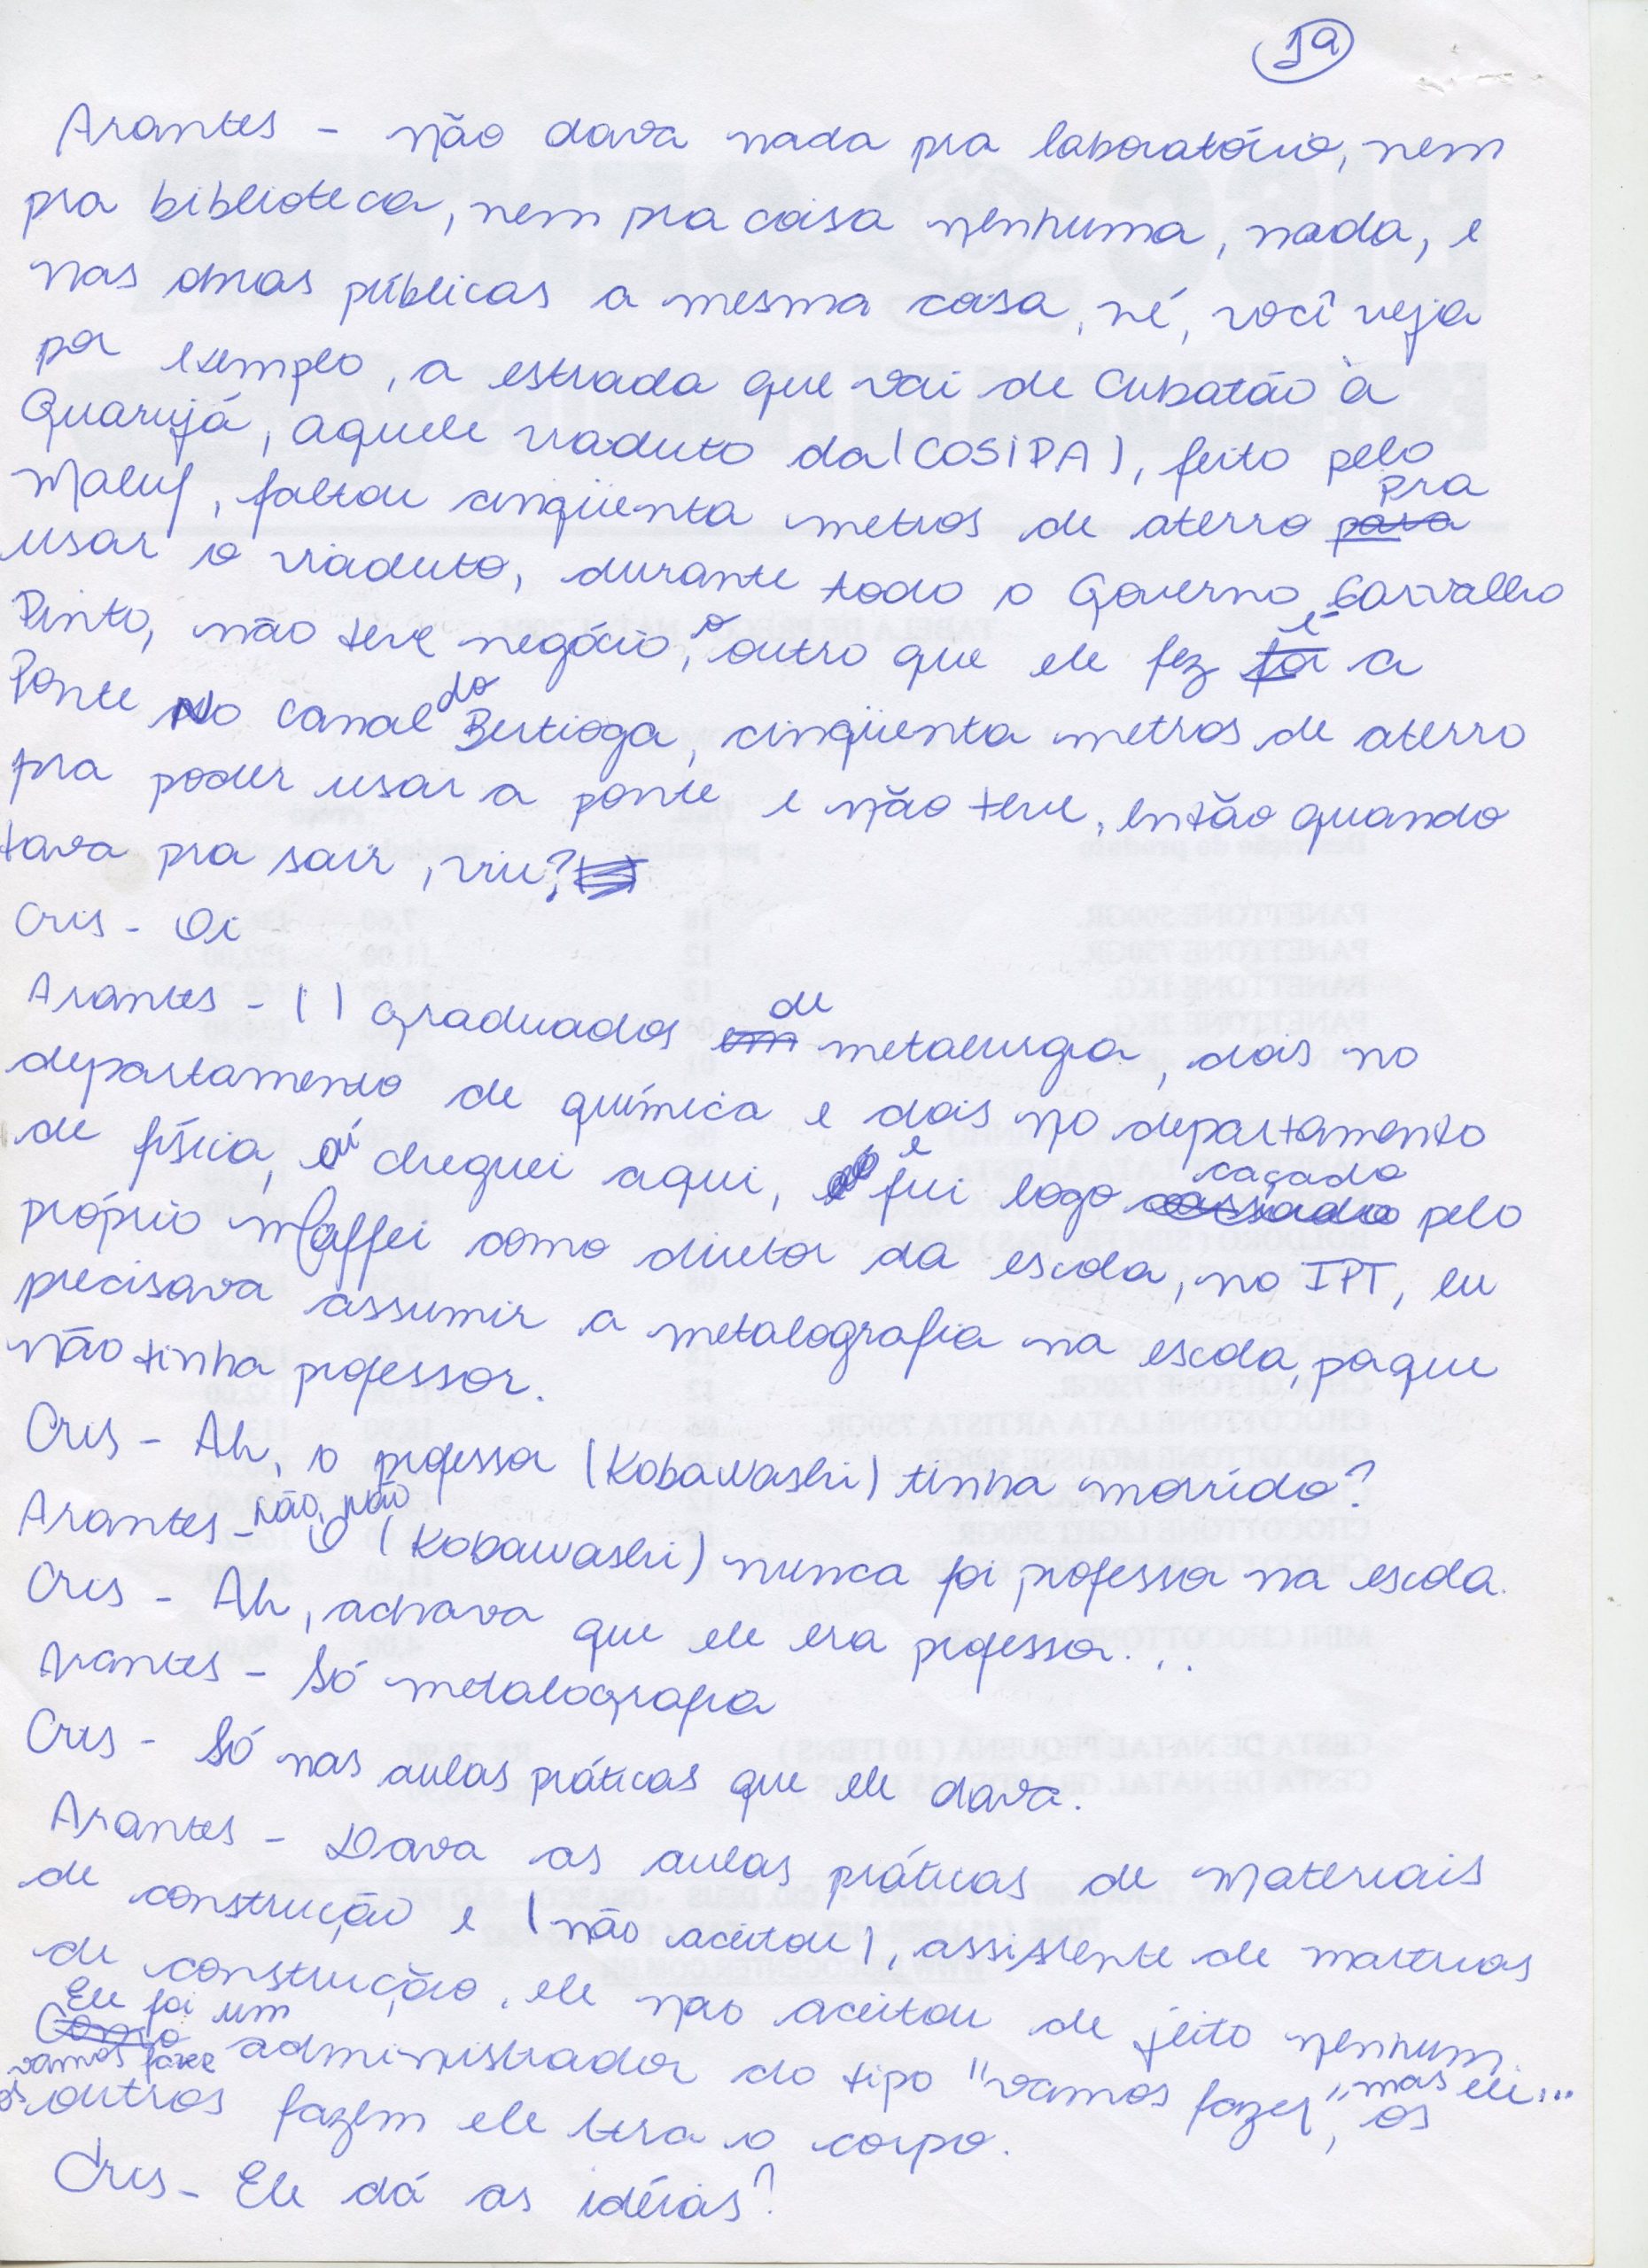 19
Arantes - não dava nada pra laboratório, nem
pra biblioteca, nem pra coisa nenhuma, nada, e
nas obras públicas a mesma coisa, né, você veja
por exemplo, a estrada que vai de Cubatão à
Guarujá, aquele viaduto da (COSIPA), feito pelo
Maluf, faltou cinqüenta metros de aterro para pra
usar o viaduto, durante todo o Governo Carvalho
Pinto, não teve negócio, o outro que ele fez foi é a
Ponte No canal do Bertioga, cinqüenta metros de aterro
pra poder usar a ponte e não teve, então quando
tava pra sair, viu?
Cris - Oi
Arantes - ( ) graduados em de metalurgia, dois no
departamento de química e dois no departamento
de física, aí cheguei aqui, e fui logo cassiado caçado pelo
próprio Maffei como diretor da escola, no IPT, eu
precisava assumir a metalografia na escola, porque
não tinha professor.
Cris - Ah, o professor (Kobawashi) tinha morrido?
Arantes - Não, não O (Kobawashi) nunca foi professor na escola.
Cris - Ah, achava que ele era professor...
Arantes - Só metalografia
Cris - Só nas aulas práticas que ele dava.
Arantes - Dava as aulas práticas de Materiais
de construção e (não aceitou), assistente de materias
de construção, ele não aceitou de jeito nenhum.
Ele foi um
Como administrador do tipo "vamos fazer," mas ele...
vamos fazer
os outros fazem ele tira o corpo.
Cris - Ele dá as idéias?